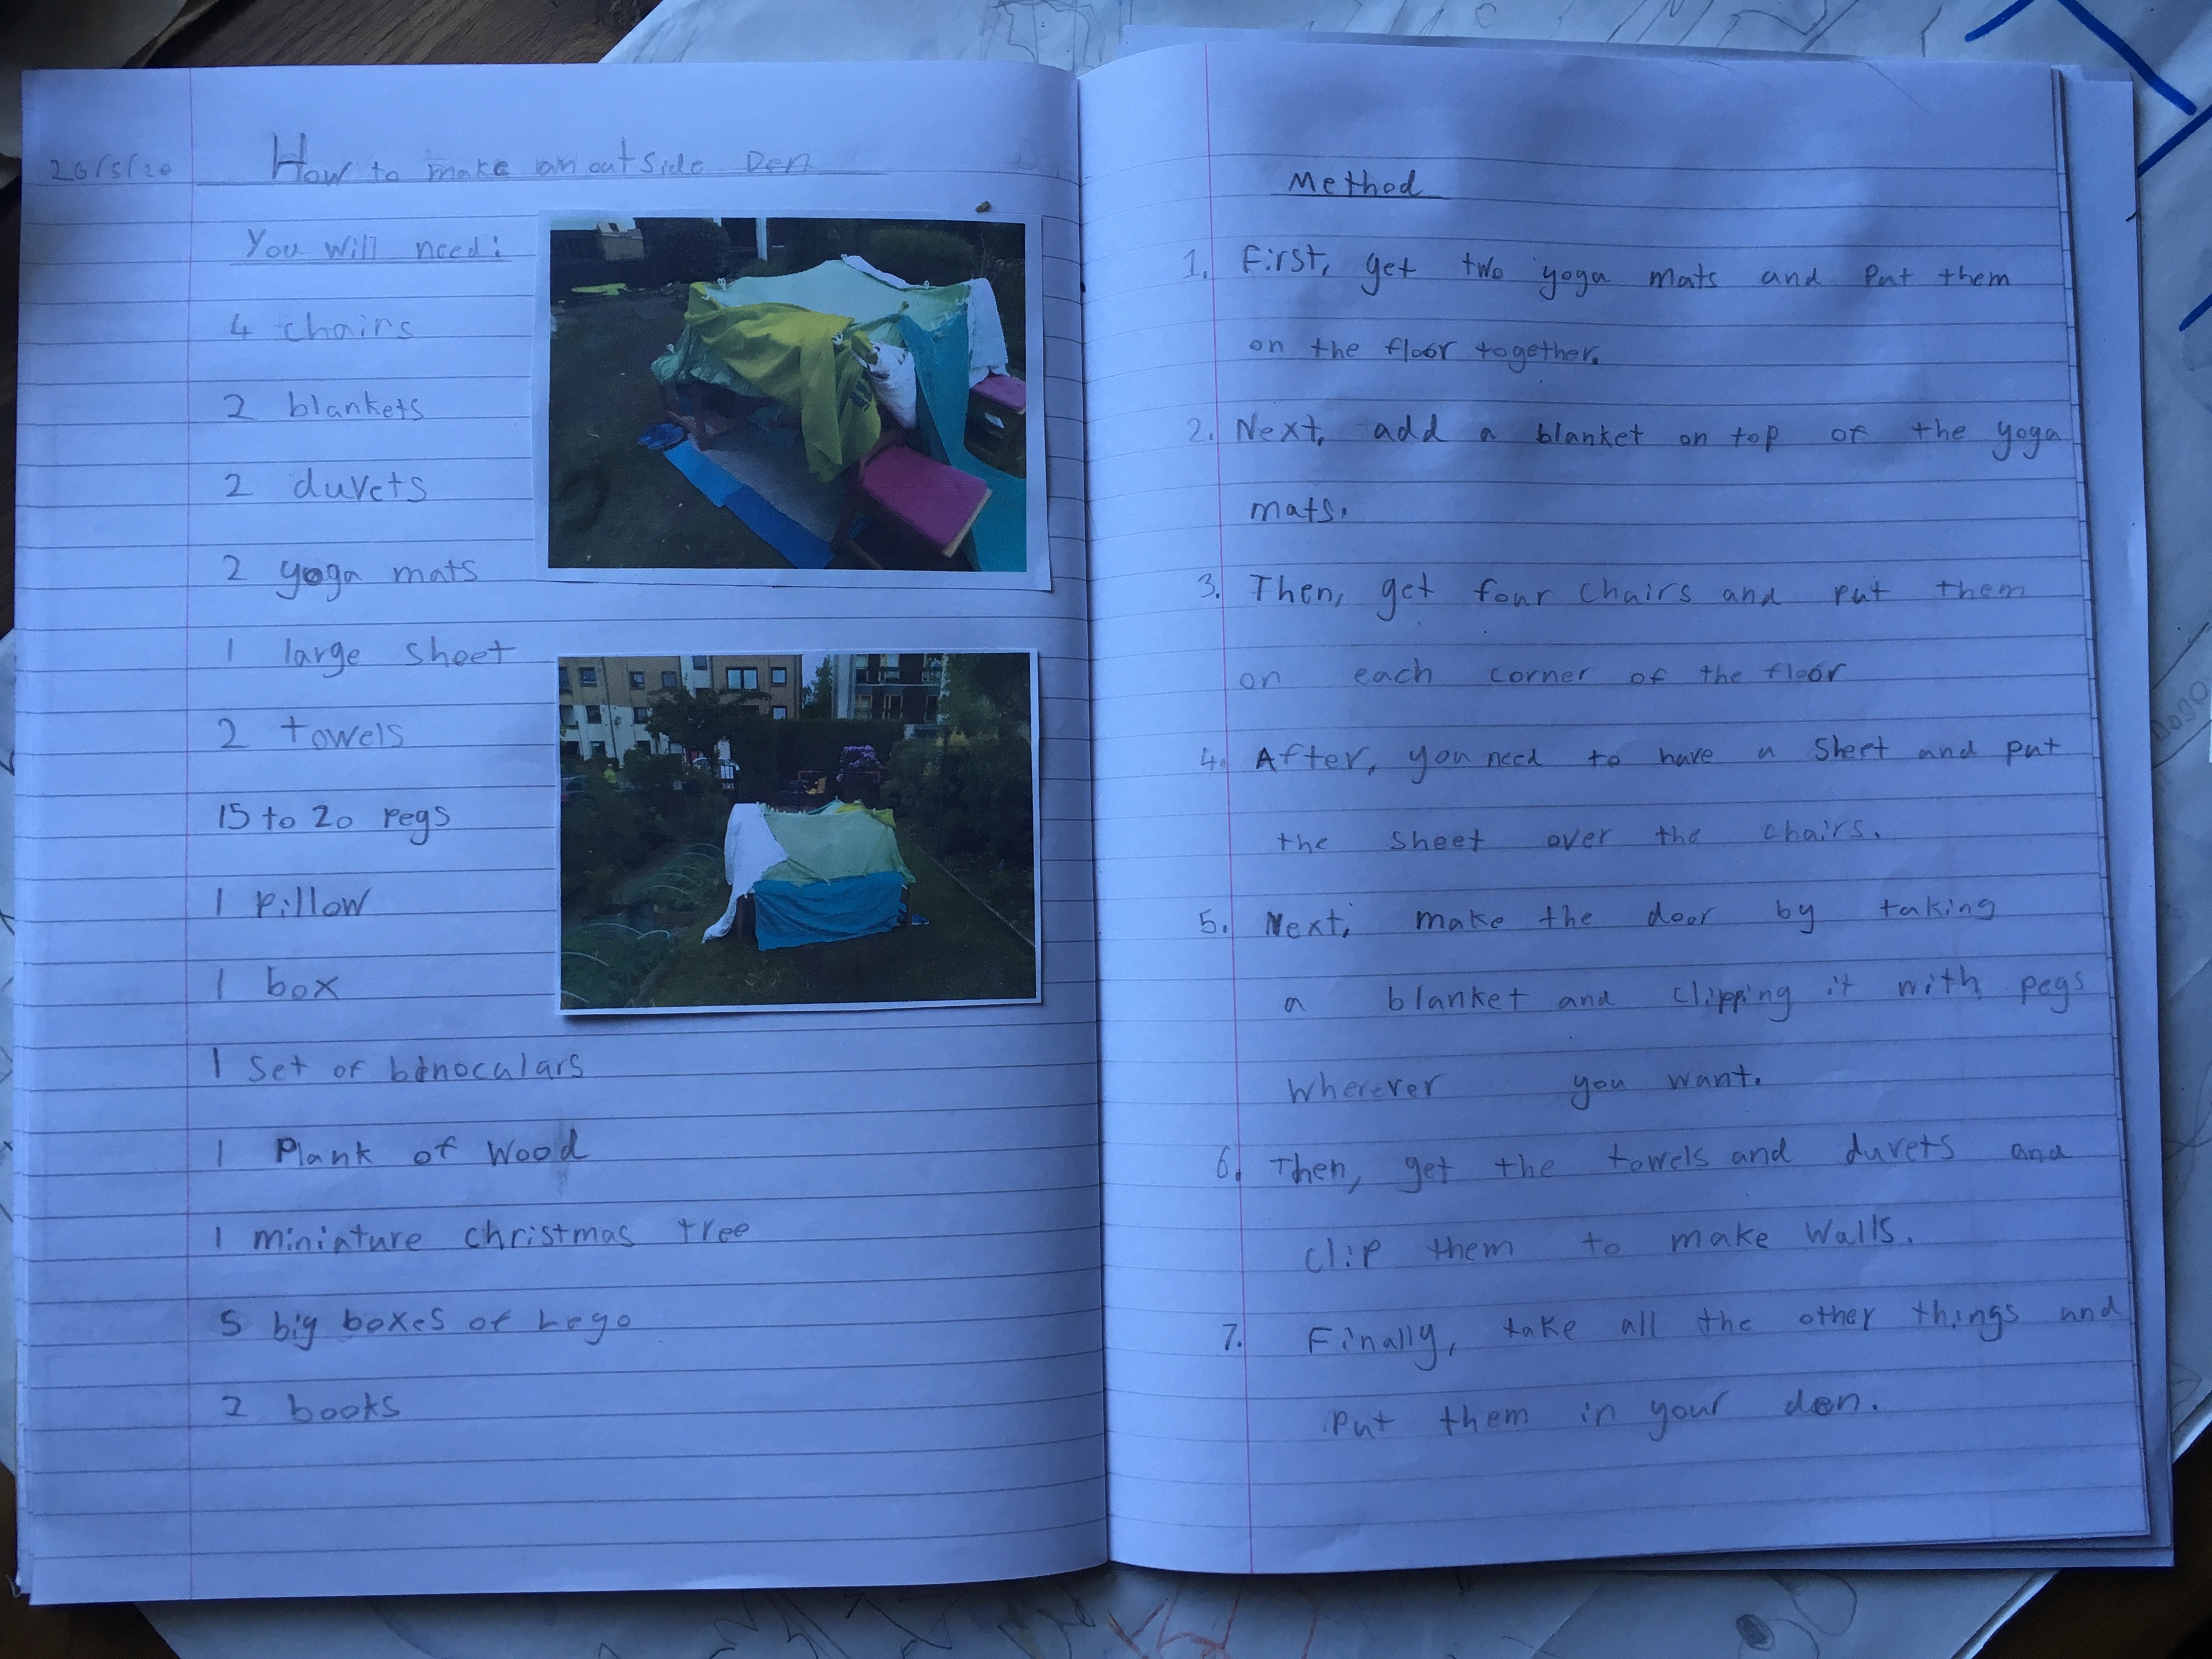 26/5/20 How to make an outside Den
You will need:
4 chairs
2 blankets
2 duvets
2 yoga mats
1 large sheet
2 towels
15 to 20 pegs
1 pillow
1 box
1 set of binoculars
1 Plank of Wood
1 miniature christmas tree
5 big boxes of Lego
2 books
Method
1. First, get two yoga mats and put them
on the floor together.
2. Next, add a blanket on top of the yoga
mats.
3. Then, get four chairs and put them
on each corner of the floor
4. After, you need to have a sheet and put
the sheet over the chairs.
5. Next, make the door by taking
a blanket and clipping it with pegs
wherever you want.
6. Then, get the towels and duvets and
clip them to make walls.
7. Finally, take all the other things and
put them in your den.